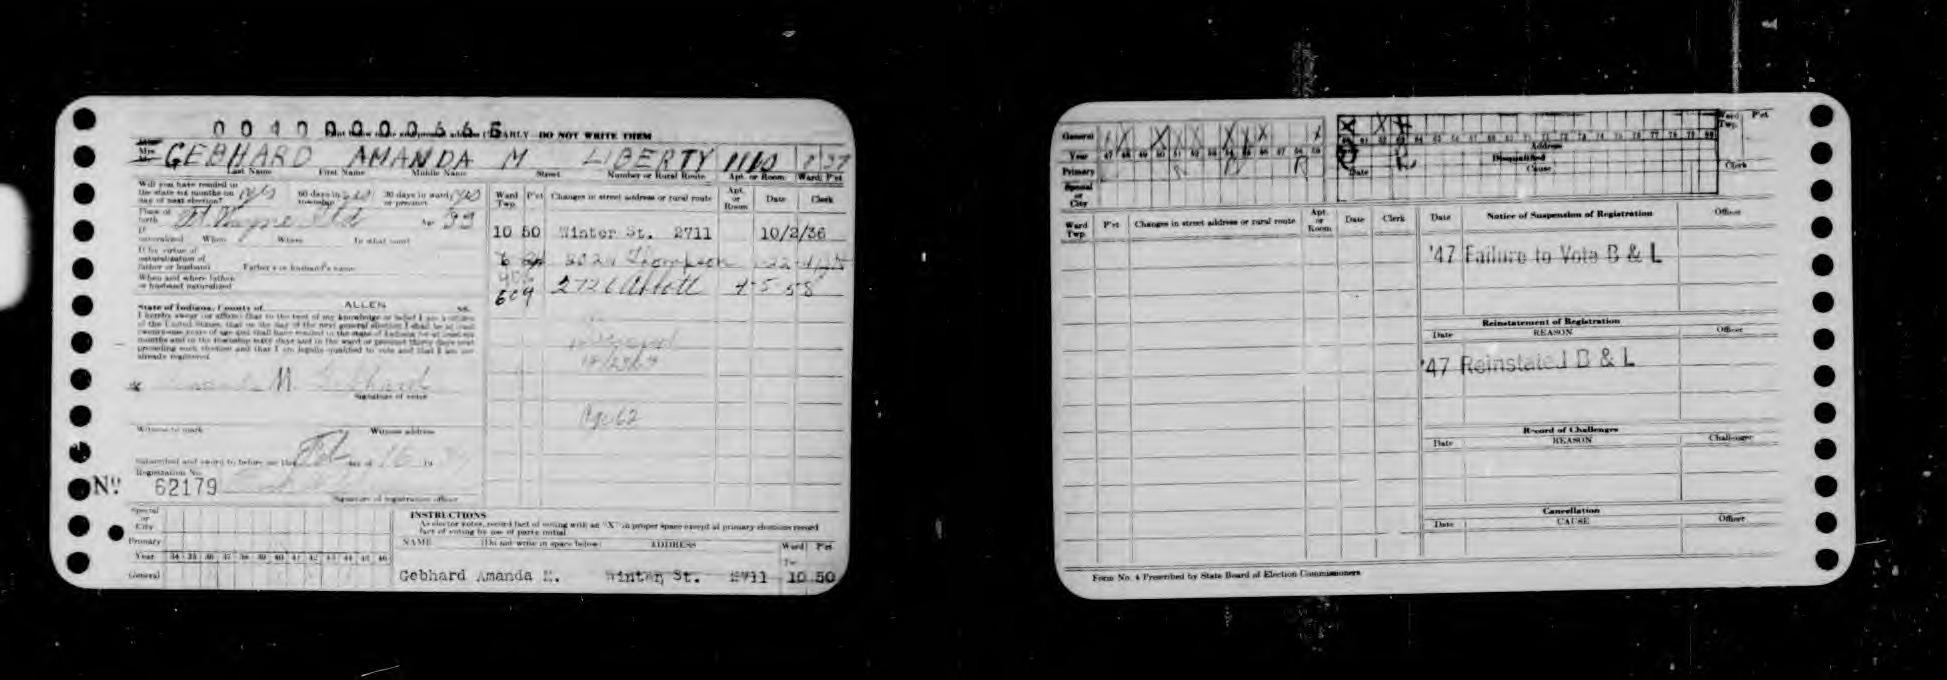 DO NOT WRITE THEM
GEBHARD AMANDA M LIBERTY 1160
Last Name First Name Middle Name Street Number or Rural Route Apt. or Room Ward P'ct
Will you have resided in
the state six months on
day of next election? yes
60 days in township yes
30 days in ward or precinct yes
Place of birth Ft Wayne Ind Age
If naturalized When Where In what court
If by virtue of
naturalization of
father or husband Father's or husband's name
When and where father
or husband naturalized
State of Indiana, County of ALLEN SS.
I hereby swear (or affirm) that to the best of my knowledge or belief I am a citizen
of the United States, that on the day of the next general election I shall be at least
twenty-one years of age and shall have resided in the state of Indiana for at least six
months and in the township sixty days and in the ward or precinct thirty days next
preceding such election and that I am legally qualified to vote and that I am not
already registered.
Amanda M. Gebhard
Signature of voter
Witness to mark Witness address
Subscribed and sworn to before me this day of 19
Registration No.
No 62179
Signature of registration officer
Ward Twp. P'ct Changes in street address or rural route Apt. or Room Date Clerk
10 50 Winter St. 2711 10/2/36
Thompson
2726 Abbott 4-5 58
Age 62
Special or City
Primary
Year 34 35 36 37 38 39 40 41 42 43 44 45 46
General
INSTRUCTIONS
As elector votes, record fact of voting with an "X" in proper space except at primary elections record
fact of voting by use of party initial
NAME (Do not write in space below) ADDRESS Ward Tw. P'ct
Gebhard Amanda M. Winter St. 2711 10 50
General
Year 47 48 49 50 51 52 53 54 55 56 57 58 59
Primary
Special or City
Address
Disqualified
Date Cause Clerk
Ward Twp. P'ct
Ward Twp. P'ct Changes in street address or rural route Apt. or Room Date Clerk
Date Notice of Suspension of Registration Officer
'47 Failure to Vote B & L
Reinstatement of Registration
Date REASON Officer
'47 Reinstated B & L
Record of Challenges
Date REASON Challenger
Cancellation
Date CAUSE Officer
Form No. 4 Prescribed by State Board of Election Commissioners